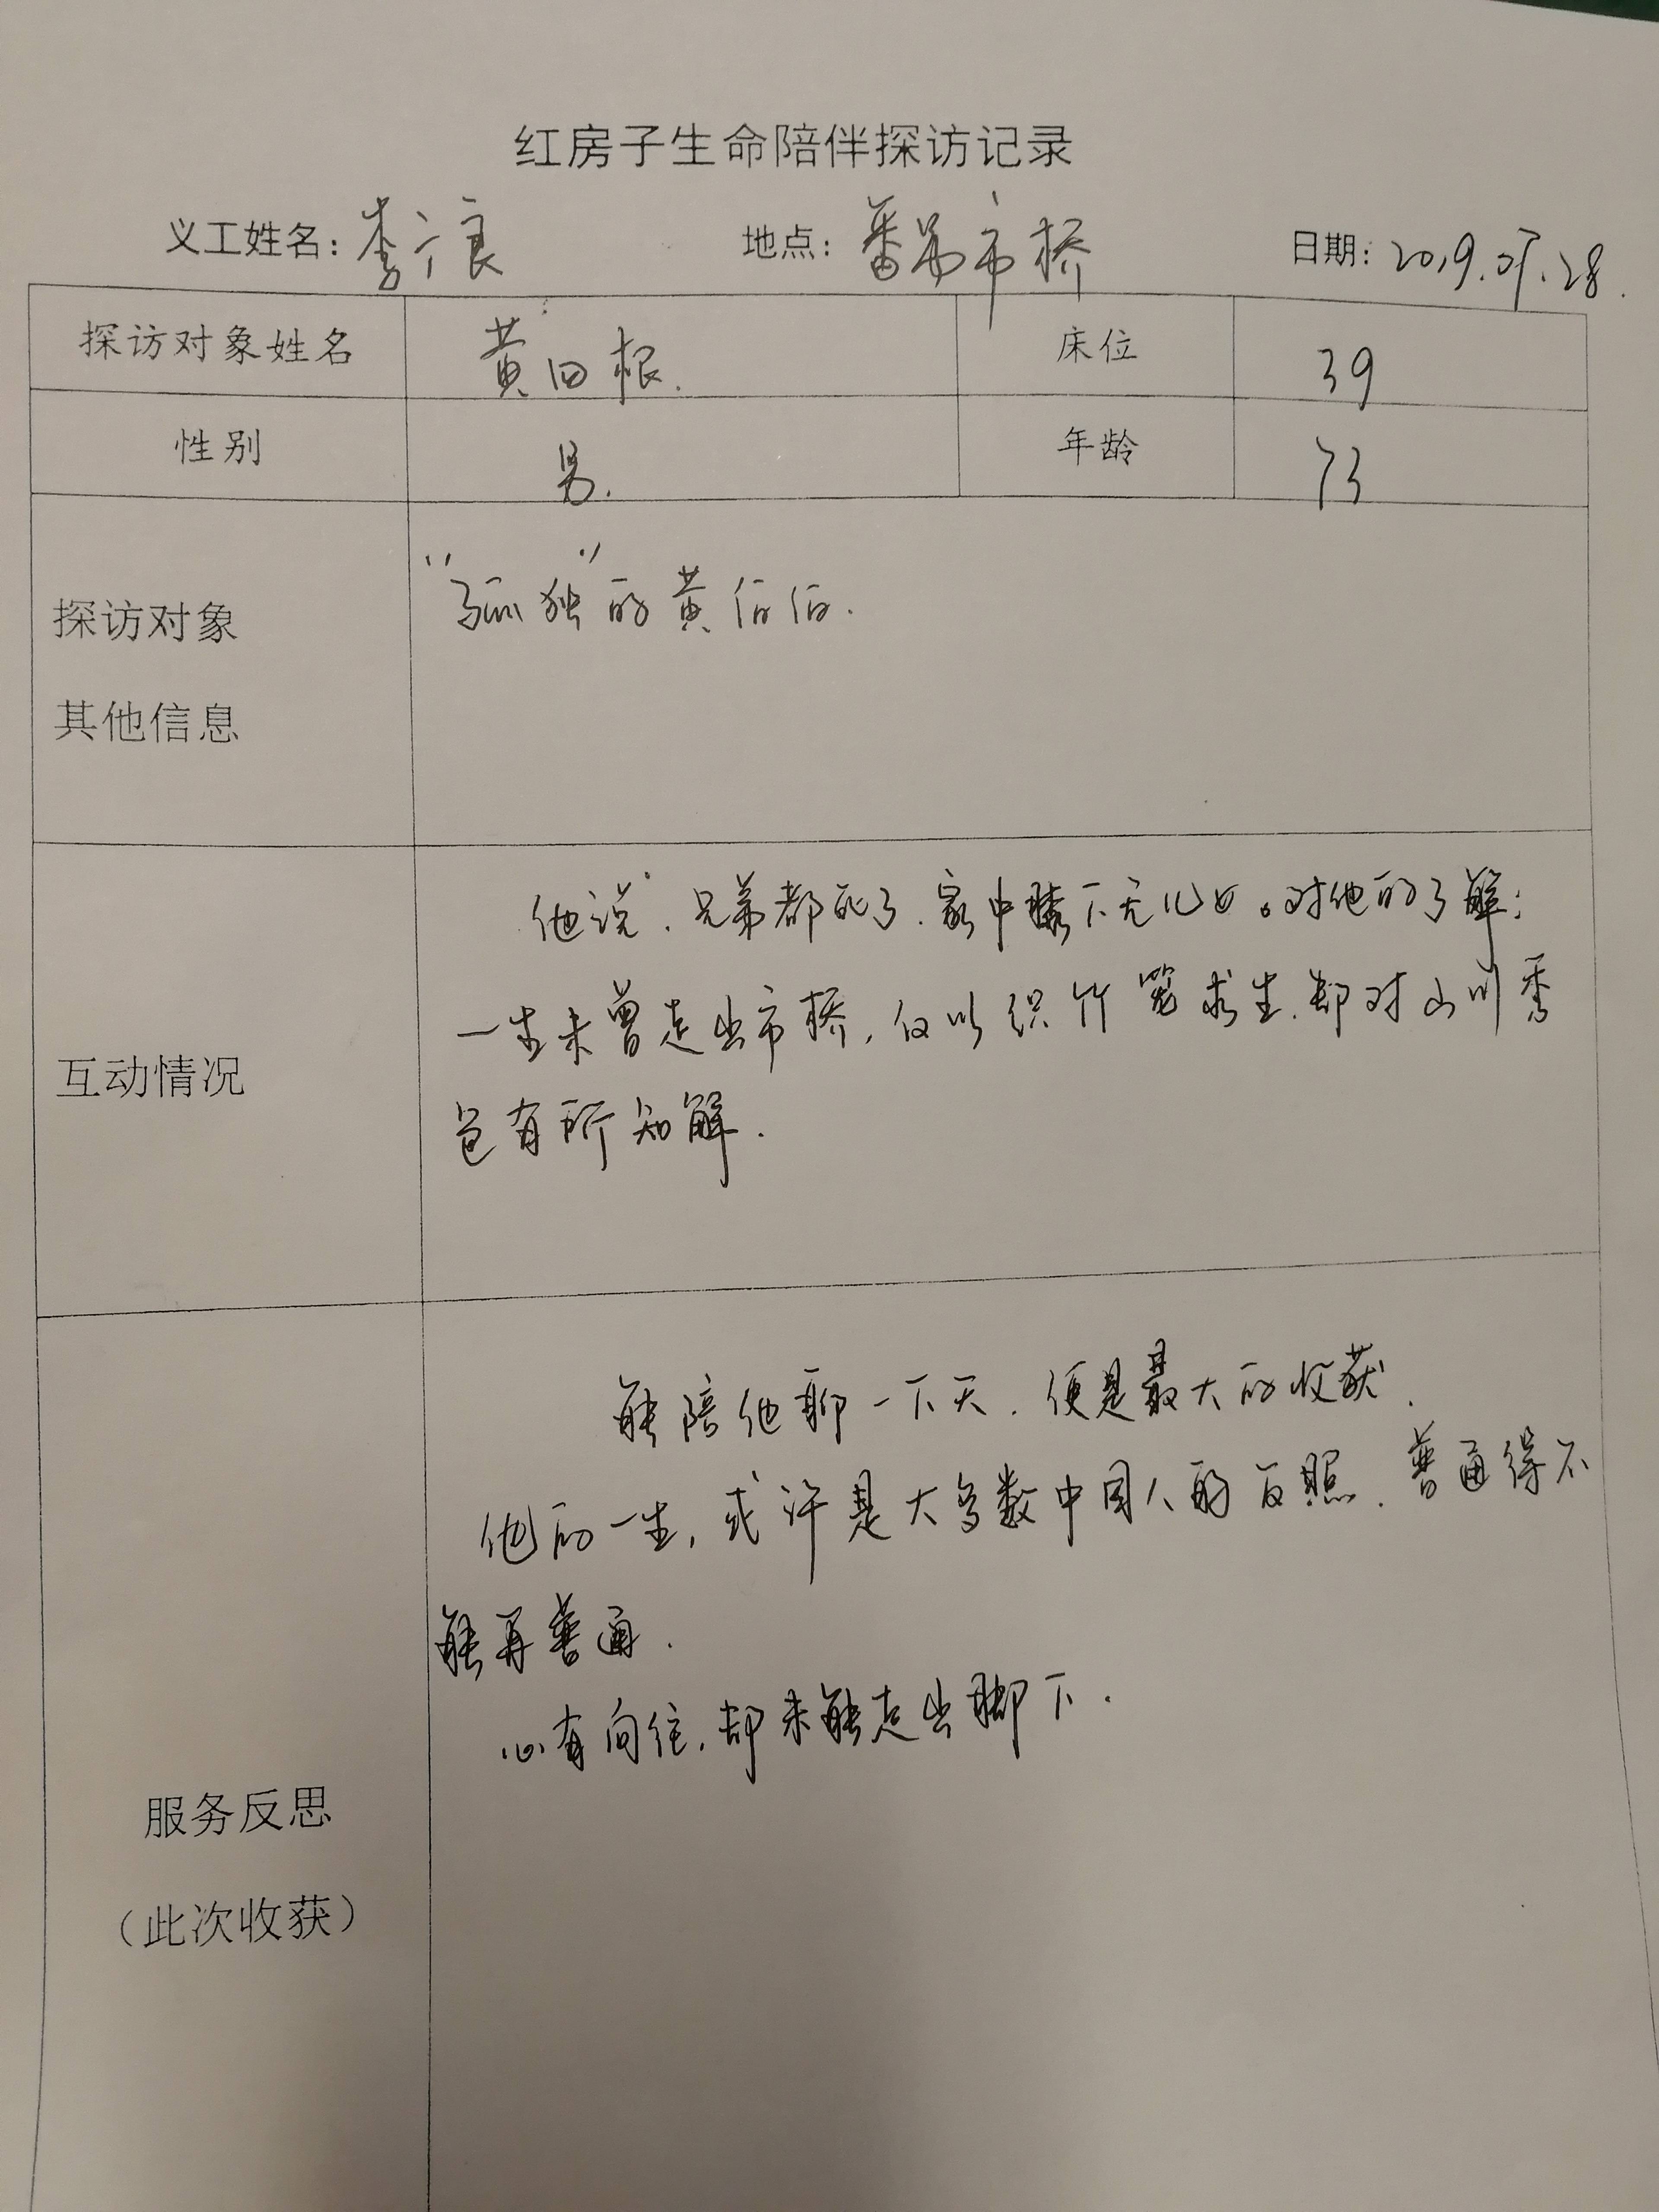 红房子生命陪伴探访记录
义工姓名：李广良 地点：番禺市桥 日期：2019.07.28.
探访对象姓名 黄田根. 床位 39
性别 男. 年龄 73
探访对象
其他信息
“孤独”的黄伯伯.
互动情况
他说，兄弟都死了.家中膝下无儿女。对他的了解：
一生未曾走出市桥，仅以织竹笼求生.却对山川秀
色有所知解.
服务反思
（此次收获）
能陪他聊一下天.便是最大的收获.
他的一生，或许是大多数中国人的反照.普通得不
能再普通.
心有向往，却未能走出脚下.